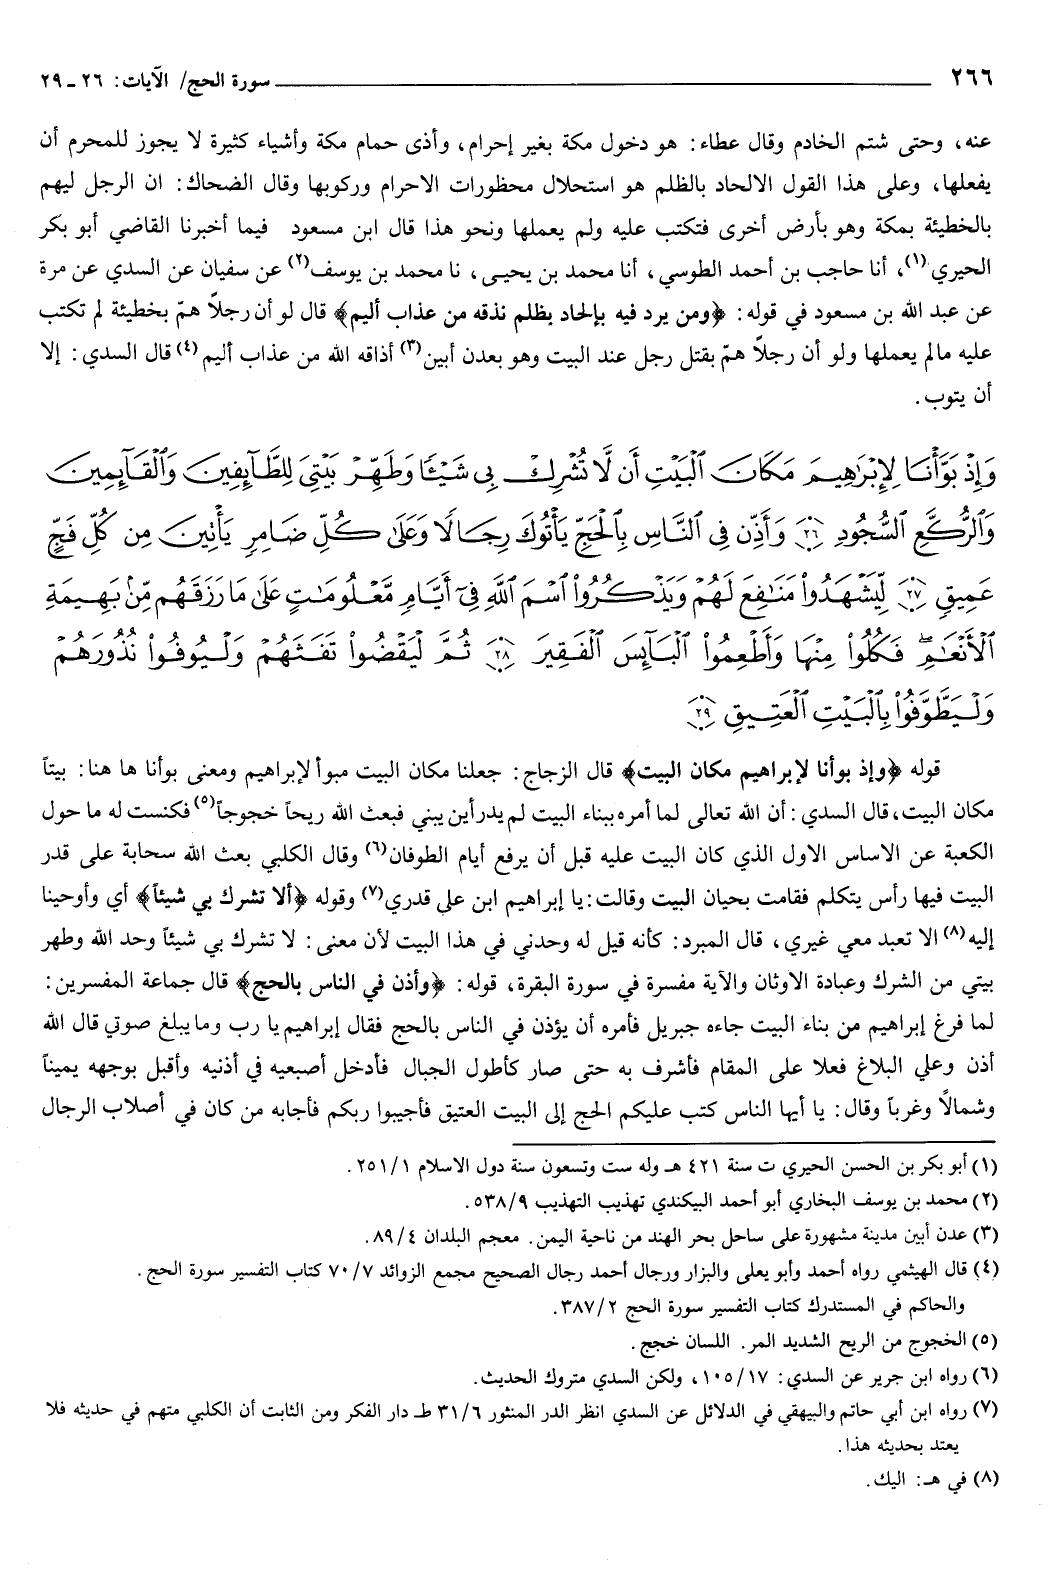 ٢٦٦ سورة الحج/ الآيات: ٢٦ ـ ٢٩
عنه، وحتى شتم الخادم وقال عطاء: هو دخول مكة بغير إحرام، وأذى حمام مكة وأشياء كثيرة لا يجوز للمحرم أن
يفعلها، وعلى هذا القول الالحاد بالظلم هو استحلال محظورات الاحرام وركوبها وقال الضحاك: ان الرجل ليهم
بالخطيئة بمكة وهو بأرض أخرى فتكتب عليه ولم يعملها ونحو هذا قال ابن مسعود فيما أخبرنا القاضي أبو بكر
الحيري(١)، أنا حاجب بن أحمد الطوسي، أنا محمد بن يحيى، نا محمد بن يوسف(٢) عن سفيان عن السدي عن مرة
عن عبد الله بن مسعود في قوله: ﴿ومن يرد فيه بإلحاد بظلم نذقه من عذاب أليم﴾ قال لو أن رجلاً همّ بخطيئة لم تكتب
عليه مالم يعملها ولو أن رجلاً همّ بقتل رجل عند البيت وهو بعدن أبين(٣) أذاقه الله من عذاب أليم(٤) قال السدي: إلا
أن يتوب.
وَإِذْ بَوَّأْنَا لِإِبْرَٰهِيمَ مَكَانَ ٱلْبَيْتِ أَن لَّا تُشْرِكْ بِى شَيْـًٔا وَطَهِّرْ بَيْتِىَ لِلطَّآئِفِينَ وَٱلْقَآئِمِينَ
وَٱلرُّكَّعِ ٱلسُّجُودِ ٢٦ وَأَذِّن فِى ٱلنَّاسِ بِٱلْحَجِّ يَأْتُوكَ رِجَالًا وَعَلَىٰ كُلِّ ضَامِرٍ يَأْتِينَ مِن كُلِّ فَجٍّ
عَمِيقٍ ٢٧ لِّيَشْهَدُوا۟ مَنَٰفِعَ لَهُمْ وَيَذْكُرُوا۟ ٱسْمَ ٱللَّهِ فِىٓ أَيَّامٍ مَّعْلُومَٰتٍ عَلَىٰ مَا رَزَقَهُم مِّنۢ بَهِيمَةِ
ٱلْأَنْعَٰمِ ۖ فَكُلُوا۟ مِنْهَا وَأَطْعِمُوا۟ ٱلْبَآئِسَ ٱلْفَقِيرَ ٢٨ ثُمَّ لْيَقْضُوا۟ تَفَثَهُمْ وَلْيُوفُوا۟ نُذُورَهُمْ
وَلْيَطَّوَّفُوا۟ بِٱلْبَيْتِ ٱلْعَتِيقِ ٢٩
قوله ﴿وإذ بوأنا لإبراهيم مكان البيت﴾ قال الزجاج: جعلنا مكان البيت مبوأ لإبراهيم ومعنى بوأنا ها هنا: بيتاً
مكان البيت، قال السدي: أن الله تعالى لما أمره ببناء البيت لم يدر أين يبني فبعث الله ريحاً خجوجاً(٥) فكنست له ما حول
الكعبة عن الاساس الاول الذي كان البيت عليه قبل أن يرفع أيام الطوفان(٦) وقال الكلبي بعث الله سحابة على قدر
البيت فيها رأس يتكلم فقامت بحيان البيت وقالت: يا إبراهيم ابن على قدري(٧) وقوله ﴿ألا تشرك بي شيئاً﴾ أي وأوحينا
إليه(٨) الا تعبد معي غيري، قال المبرد: كأنه قيل له وحدني في هذا البيت لأن معنى: لا تشرك بي شيئاً وحد الله وطهر
بيتي من الشرك وعبادة الاوثان والآية مفسرة في سورة البقرة، قوله: ﴿وأذن في الناس بالحج﴾ قال جماعة المفسرين:
لما فرغ إبراهيم من بناء البيت جاءه جبريل فأمره أن يؤذن في الناس بالحج فقال إبراهيم يا رب وما يبلغ صوتي قال الله
أذن وعلي البلاغ فعلا على المقام فأشرف به حتى صار كأطول الجبال فأدخل أصبعيه في أذنيه وأقبل بوجهه يميناً
وشمالاً وغرباً وقال: يا أيها الناس كتب عليكم الحج إلى البيت العتيق فأجيبوا ربكم فأجابه من كان في أصلاب الرجال
(١) أبو بكر بن الحسن الحيري ت سنة ٤٢١ هـ وله ست وتسعون سنة دول الاسلام ٢٥١/١.
(٢) محمد بن يوسف البخاري أبو أحمد البيكندي تهذيب التهذيب ٥٣٨/٩.
(٣) عدن أبين مدينة مشهورة على ساحل بحر الهند من ناحية اليمن. معجم البلدان ٨٩/٤.
(٤) قال الهيثمي رواه أحمد وأبو يعلى والبزار ورجال أحمد رجال الصحيح مجمع الزوائد ٧٠/٧ كتاب التفسير سورة الحج.
والحاكم في المستدرك كتاب التفسير سورة الحج ٣٨٧/٢.
(٥) الخجوج من الريح الشديد المر. اللسان خجج.
(٦) رواه ابن جرير عن السدي: ١٠٥/١٧، ولكن السدي متروك الحديث.
(٧) رواه ابن أبي حاتم والبيهقي في الدلائل عن السدي انظر الدر المنثور ٣١/٦ طـ دار الفكر ومن الثابت أن الكلبي متهم في حديثه فلا
يعتد بحديثه هذا.
(٨) في هـ: اليك.